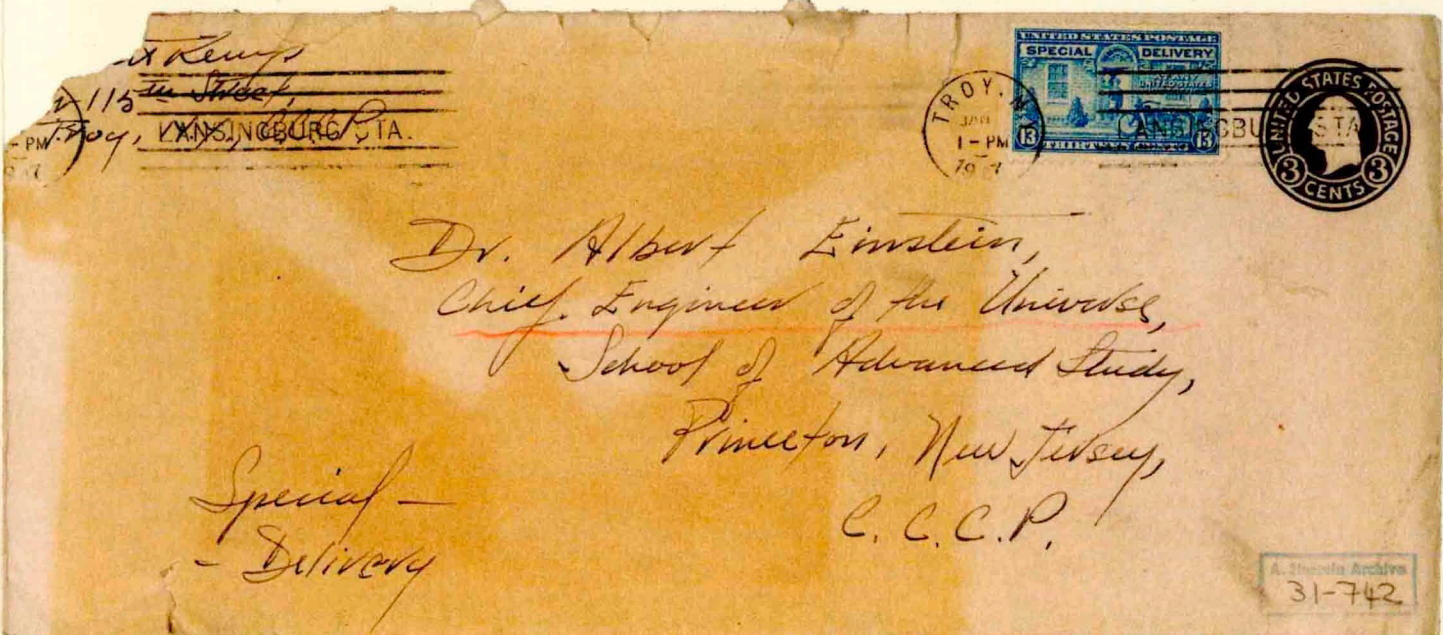 Kemp
115th Street,
Troy,
PM
LANSINGBURG STA.
TROY, N.
JAN
1-PM
UNITED STATES POSTAGE
SPECIAL DELIVERY
13 13
THIRTEEN CENTS
LANSINGBU STA
UNITED STATES POSTAGE
3 3
CENTS
Dr. Albert Einstein,
Chief. Engineer of the Universe,
School of Advanced Study,
Princeton, New Jersey,
C.C.C.P.
Special -
- Delivery
A. Einstein Archive
31-742